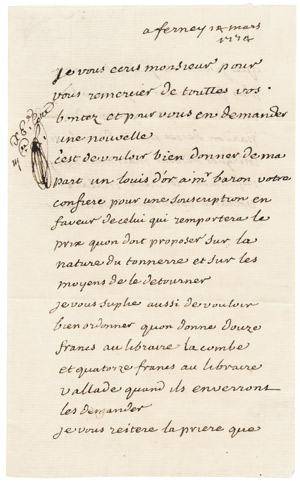 a ferney 14 mars
1774
je vous ecris monsieur pour
vous remercier de touttes vos
bontez et par vous en demander
une nouvelle
c'est de vouloir bien donner de ma
part un louis d'or a mr baron votre
confrere pour une souscription en
faveur de celui qui remportera le
prix quon doit proposer sur la
nature du tonnerre et sur les
moyens de le detourner
je vous suplie aussi de vouloir
bien ordonner quon donne douze
francs au libraire la combe
et quatorze francs au libraire
vallade quand ils enverront
les demander
je vous reitere la priere que